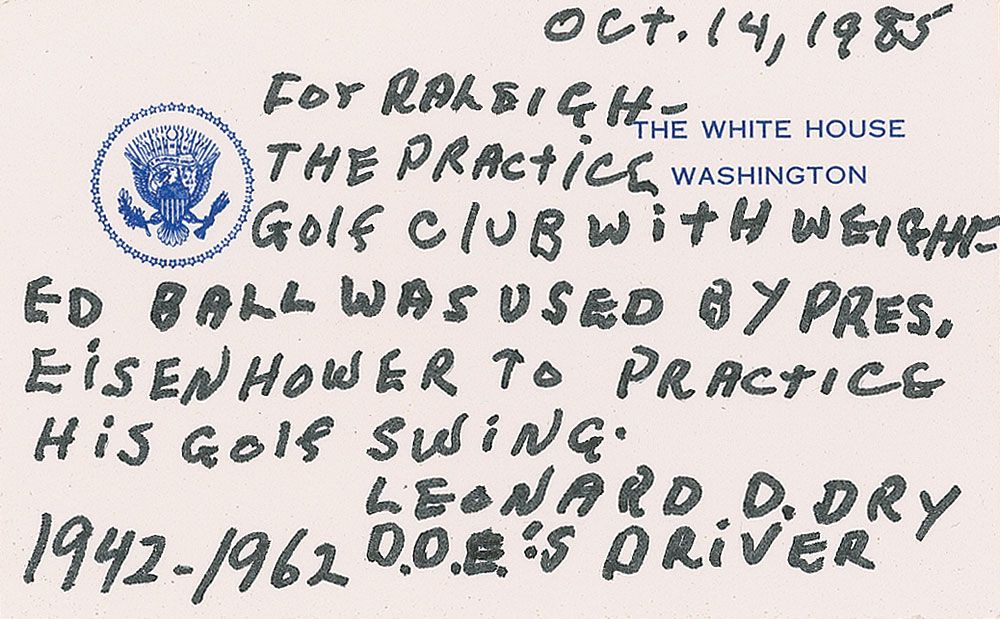 OCT. 14, 1985
For RALEIGH-
THE WHITE HOUSE
THE PRACTICE
WASHINGTON
GOLF CLUB WITH WEIGHT-
ED BALL WAS USED BY PRES.
EISENHOWER TO PRACTICE
HIS GOLF SWING.
LEONARD D. DRY
1942-1962 D.D.E.'S DRIVER